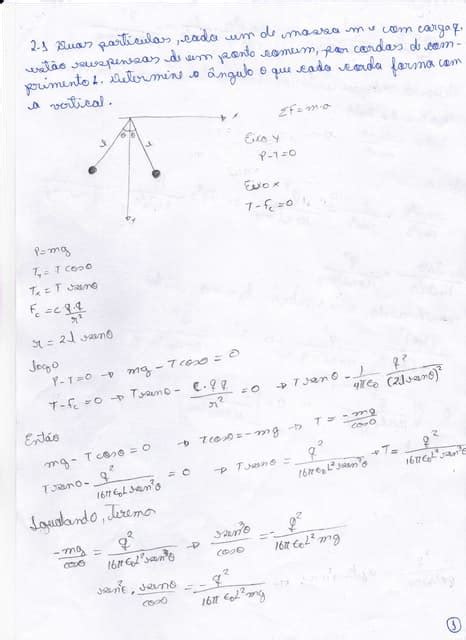 2-1 Duas partículas, cada um de massa m e com carga q.
estão suspensas de um ponto comum, por cordas de com-
primento L. Determine o ângulo θ que cada corda forma com
a vertical.
x
ΣF = m·a
θ θ
Eixo y
L L
P-T=0
Eixo x
T-Fc=0
y
P=mg
Ty = T cosθ
Tx = T senθ
Fc = c q.q/r²
r = 2L senθ
logo
P-T=0 → mg - T cosθ = 0
T-Fc=0 → T senθ - c.qq/r² = 0 → T senθ - 1/4πε0 q²/(2L senθ)²
Então
mg - T cosθ = 0 → T cosθ = -mg → T = -mg/cosθ
T senθ - q²/16πε0L sen²θ = 0 → T senθ = q²/16πε0L² sen²θ → T = q²/16πε0L² sen³θ
Igualando, Teremos
-mg/cosθ = q²/16πε0L² sen³θ → sen³θ/cosθ = -q²/16πε0L² mg
sen²θ . senθ/cosθ = -q²/16πε0L² mg
1